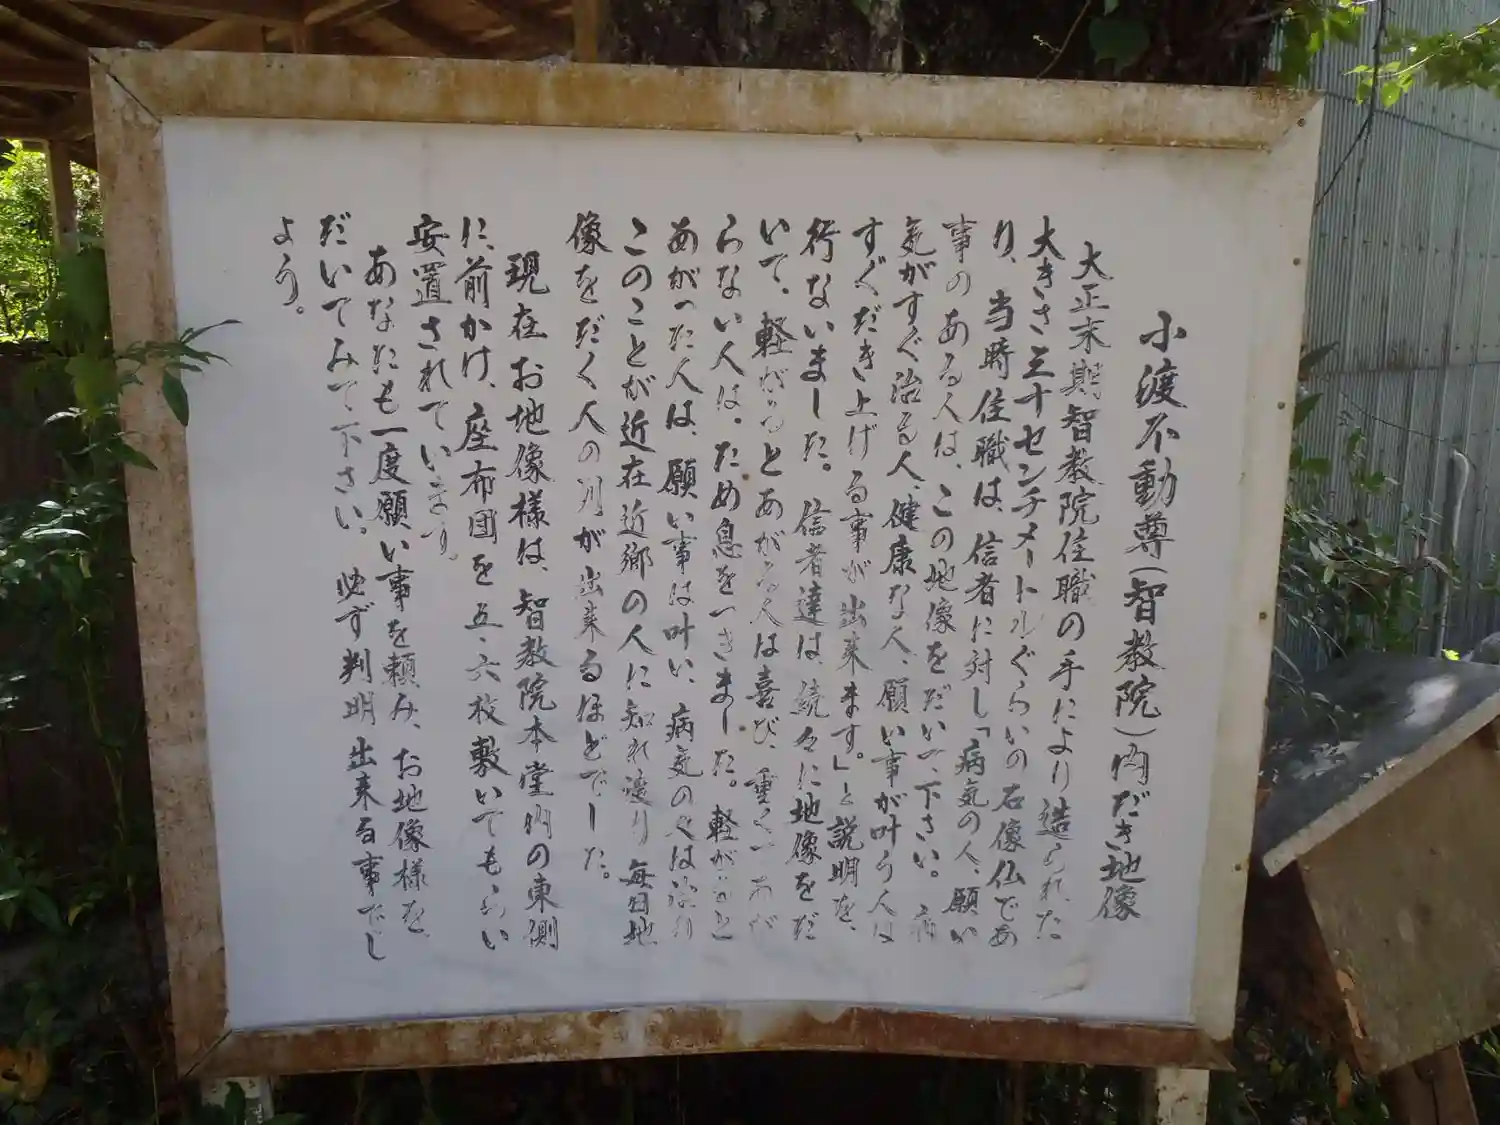 小渡不動尊(智教院)内だき地像
大正末期智教院住職の手により造られた
大きさ三十センチメートルぐらいの石像仏であ
り、当時住職は、信者に対し「病気の人、願い
事のある人は、この地像をだいて下さい。病
気がすぐ治る人、健康な人、願い事が叶う人は
すぐだき上げる事が出来ます。」と説明を、
行ないました。信者達は、続々に地像をだ
いて、軽がるとあがる人は喜び、重くてあが
らない人は、ため息をつきました。軽がると
あがった人は、願い事は叶い、病気の人は治り
このことが近在近郷の人に知れ渡り毎日地
像をだく人の列が出来るほどでした。
現在お地像様は、智教院本堂内の東側
に、前かけ、座布団を五、六枚敷いてもらい
安置されています。
あなたも一度願い事を頼み、お地像様を、
だいてみて下さい。必ず判明出来る事でし
ょう。